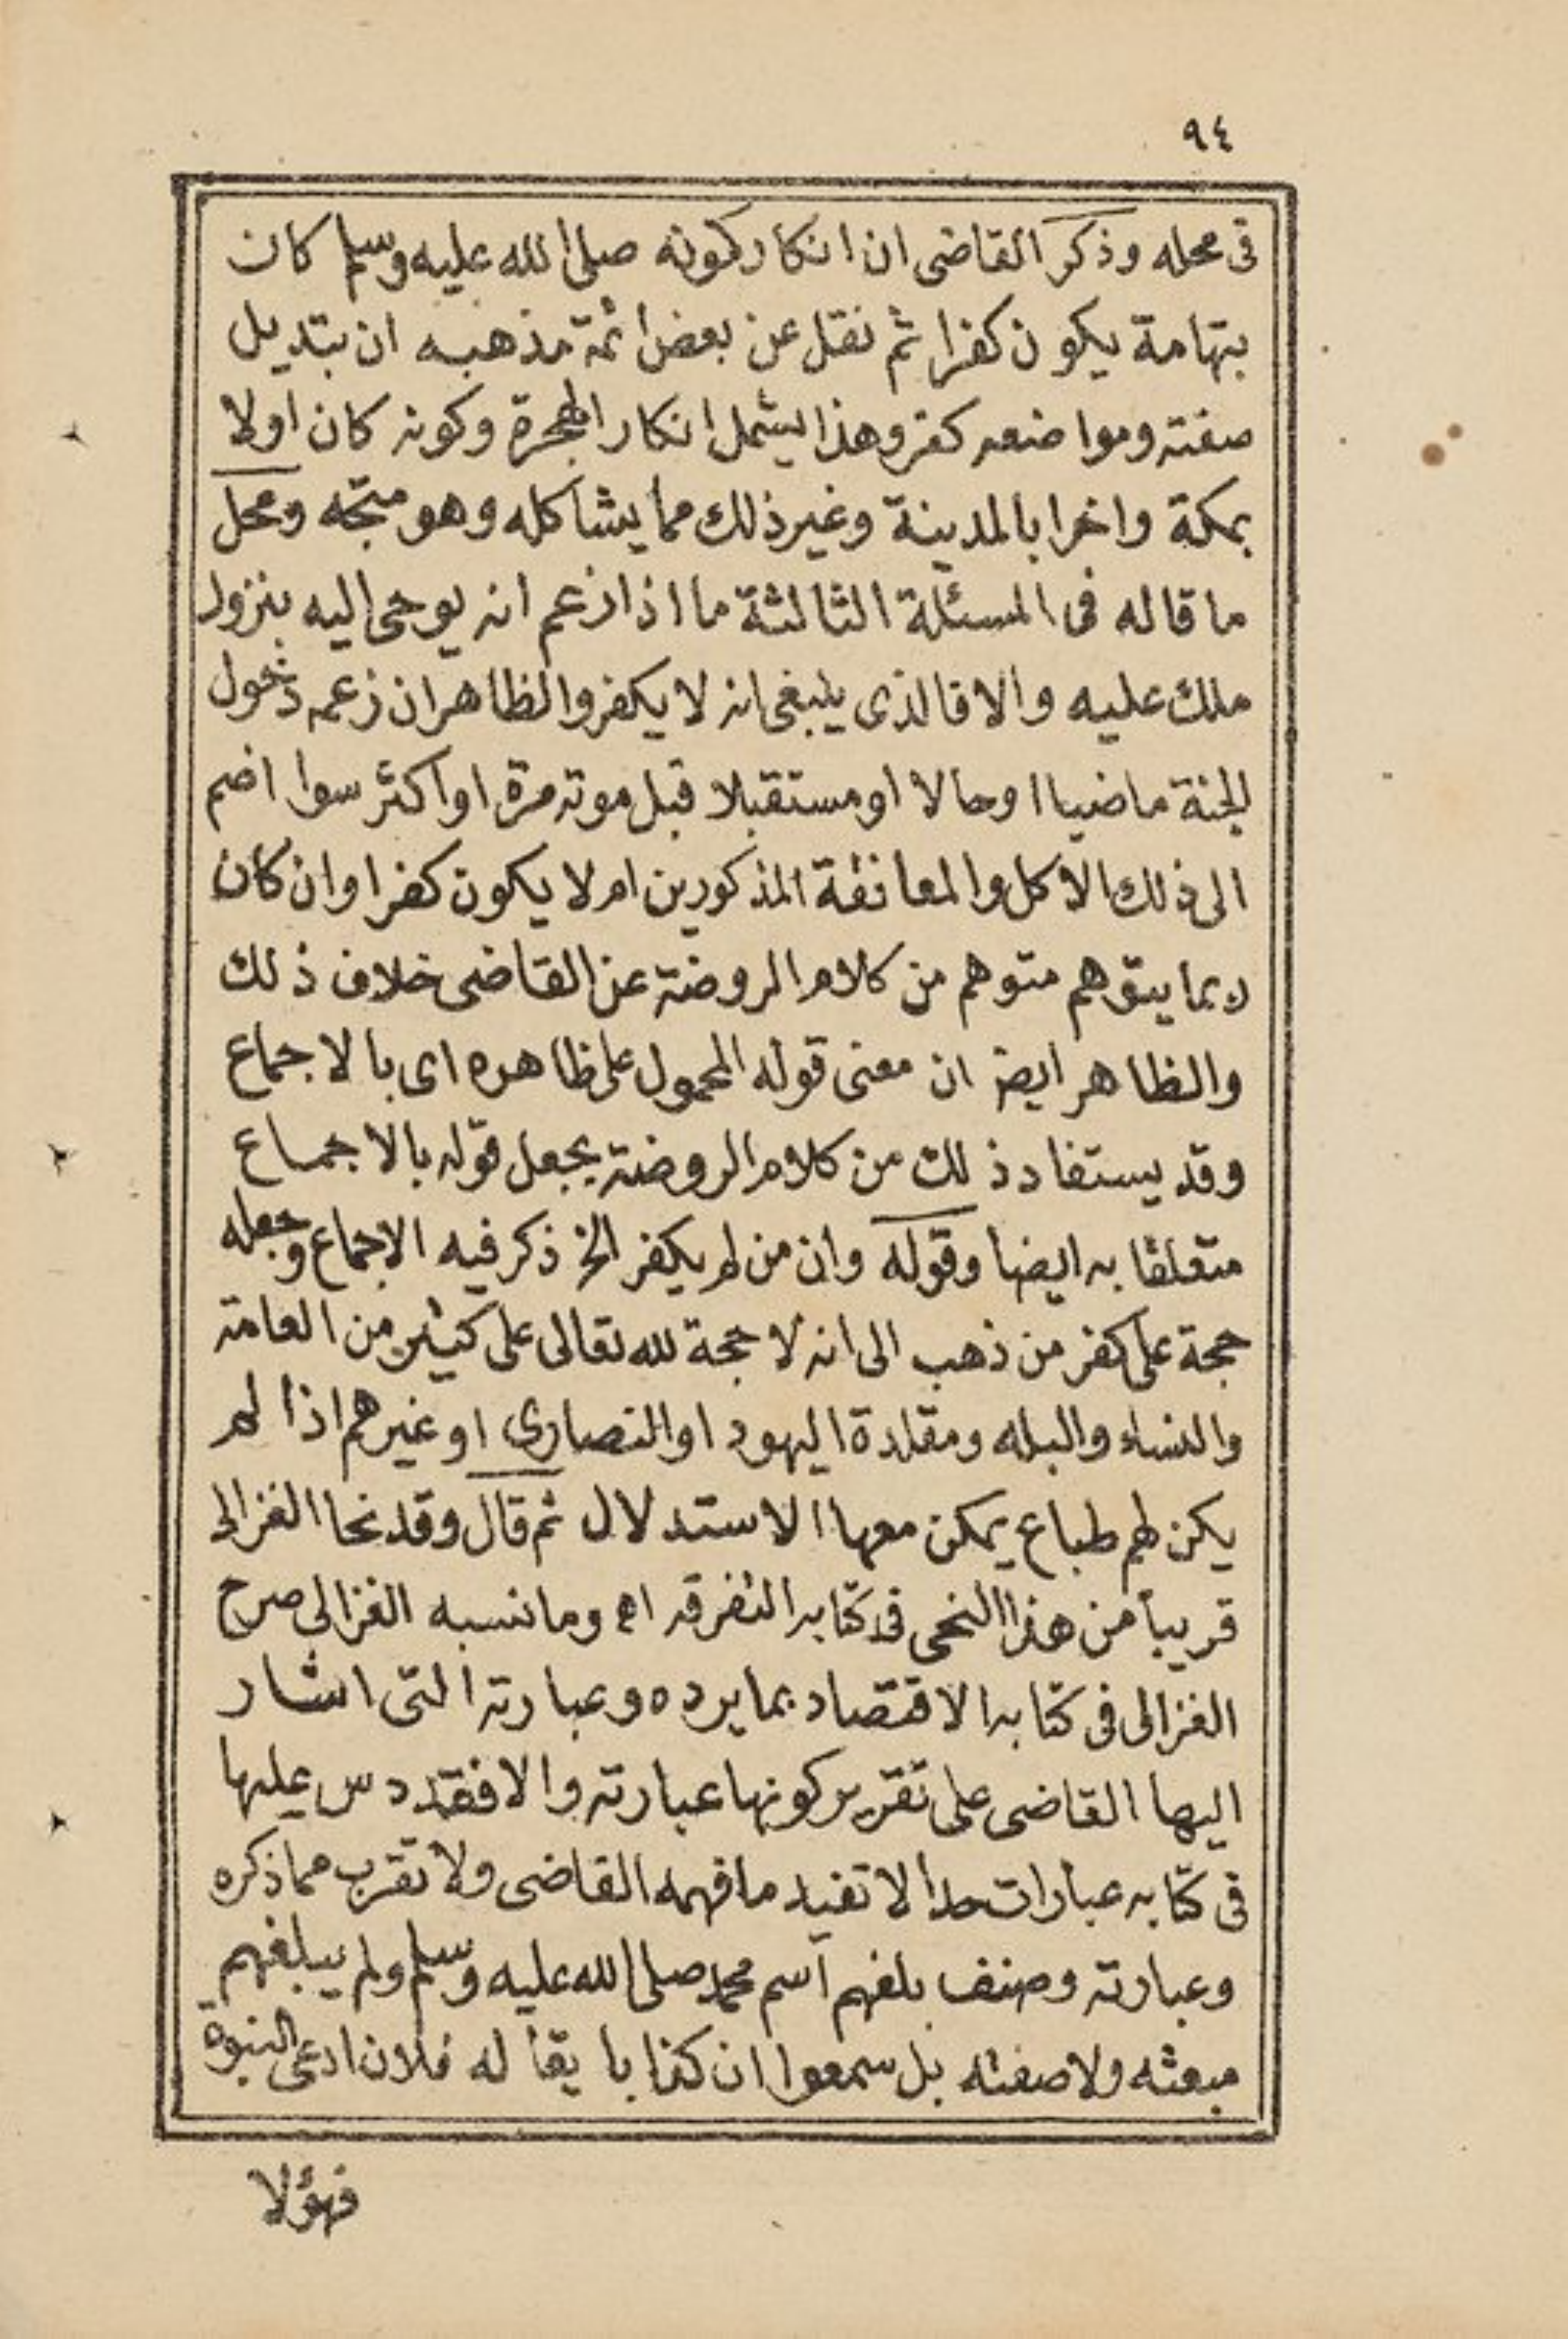 ٩٤
في محله وذكر القاضى ان انكار كونه صلى الله عليه وسلم كان
بتهامة يكون كفرا ثم نقل عن بعض ائمة مذهبه ان تبديل
صفته ومواضعه كفر وهذا يشمل انكار الهجرة وكونه كان اولا
بمكة واخرا بالمدينة وغير ذلك مما يشاكله وهو متجه ومحل
ما قاله فى المسئلة الثالثة ما اذا زعم انه يوحى اليه بنزول
ملك عليه والا فالذى ينبغى انه لا يكفر والظاهر ان زعمه دخول
الجنة ماضيا او حالا او مستقبلا قبل موته مرة او اكثر سوا اضم
الى ذلك الاكل والمعانقة المذكورين ام لا يكون كفرا وان كان
ربما يتوهم متوهم من كلام الروضة عن القاضى خلاف ذلك
والظاهر ايضا ان معنى قوله المحمول على ظاهره اى بالاجماع
وقد يستفاد ذلك من كلام الروضة بجعل قوله بالاجماع
متعلقا به ايضا وقوله وان من لم يكفر الخ ذكر فيه الاجماع وجعله
حجة على كفر من ذهب الى انه لا حجة لله تعالى على كثير من العامة
والنساء والبله ومقلدة اليهود او النصارى او غيرهم اذا لم
يكن لهم طباع يمكن معها الاستدلال ثم قال وقد نحا الغزالى
قريبا من هذا النحى فى كتابه التفرقه اه وما نسبه الغزالى صرح
الغزالى فى كتابه الاقتصاد بما يرده وعبارته التى اشار
اليها القاضى على تقرير كونها عبارته والا فقد دس عليها
فى كتابه عبارات حدا لا تفيد ما فهمه القاضى ولا تقرب مما ذكره
وعبارته وصنف بلغهم اسم محمد صلى الله عليه وسلم ولم يبلغهم
مبعثه ولا صفته بل سمعوا ان كذابا يقا له فلان ادعى النبوة
فهؤلا